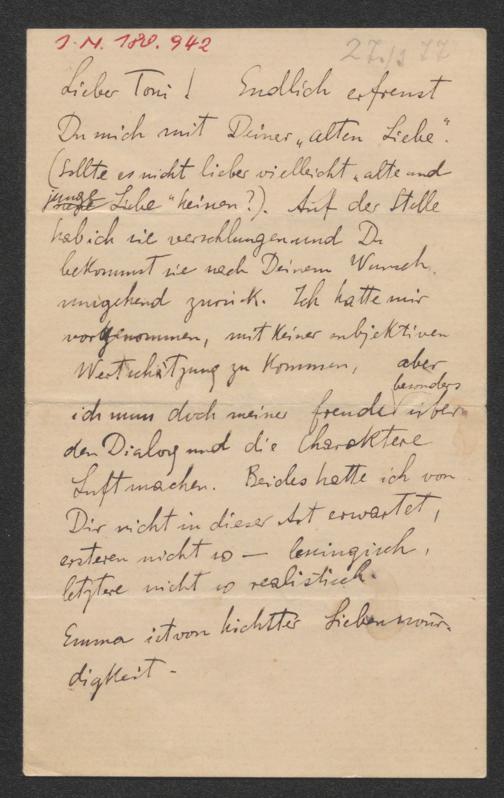 I. N. 180.942
27./3 77
Lieber Toni! Endlich erfreust
Du mich mit Deiner „alten Liebe".
(Sollte es nicht lieber vielleicht „alte und
junge Liebe" heissen?). Auf der Stelle
hab ich sie verschlungen und Du
bekommst sie nach Deinem Wunsch
umgehend zurück. Ich hatte mir
vorgenommen, mit keiner subjektiven
Wertschätzung zu kommen, aber
besonders
ich muss doch meiner Freude über
den Dialog und die Charaktere
Luft machen. Beides hatte ich von
Dir nicht in dieser Art erwartet,
ersteren nicht so — lessingisch,
letztere nicht so realistisch.
Emma ist von Liebenswür-
digkeit –